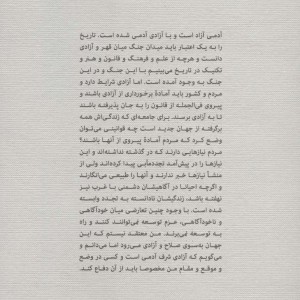 آدمی آزاد است و با آزادی آدمی شده است. تاریخ
را به یک اعتبار باید میدان جنگ میان قهر و آزادی
دانست و هرچه از علم و فرهنگ و قانون و هنر و
تکنیک در تاریخ می‌بینیم با این جنگ و در این
جنگ به وجود آمده است. اما آزادی شرایط دارد و
مردم و کشور باید آمادهٔ برخورداری از آزادی باشند و
پیروی فی‌الجمله از قانون را به جان پذیرفته باشند
تا به آزادی برسند. برای جامعه‌ای که زندگی‌اش همه
برگرفته از جهان جدید است چه قوانینی می‌توان
وضع کرد که مردم آمادهٔ پیروی از آنها باشند؟
مردم نیازهایی دارند که در گذشته نداشته‌اند و این
نیازها را در پیش‌آمد تجددمآبی پیدا کرده‌اند ولی از
منشأ نیازها خبر ندارند و آنها را طبیعی می‌انگارند
و اگرچه احیانا در آگاهیشان دشمنی با غرب نیز
نهفته باشد، زندگیشان نادانسته به تجدد وابسته
شده است. با وجود چنین تعارضی میان خودآگاهی
و ناخودآگاهی، عزم توسعه نمی‌توانند کنند و راه
توسعه نمی‌توانند بروند. من معتقد نیستم که این
جهان به‌سوی صلاح و آزادی می‌رود اما می‌دانم و
می‌گویم که آزادی شرف آدمی است و کسی در وضع
و موقع و مقام من مخصوصا باید از آن دفاع کند.